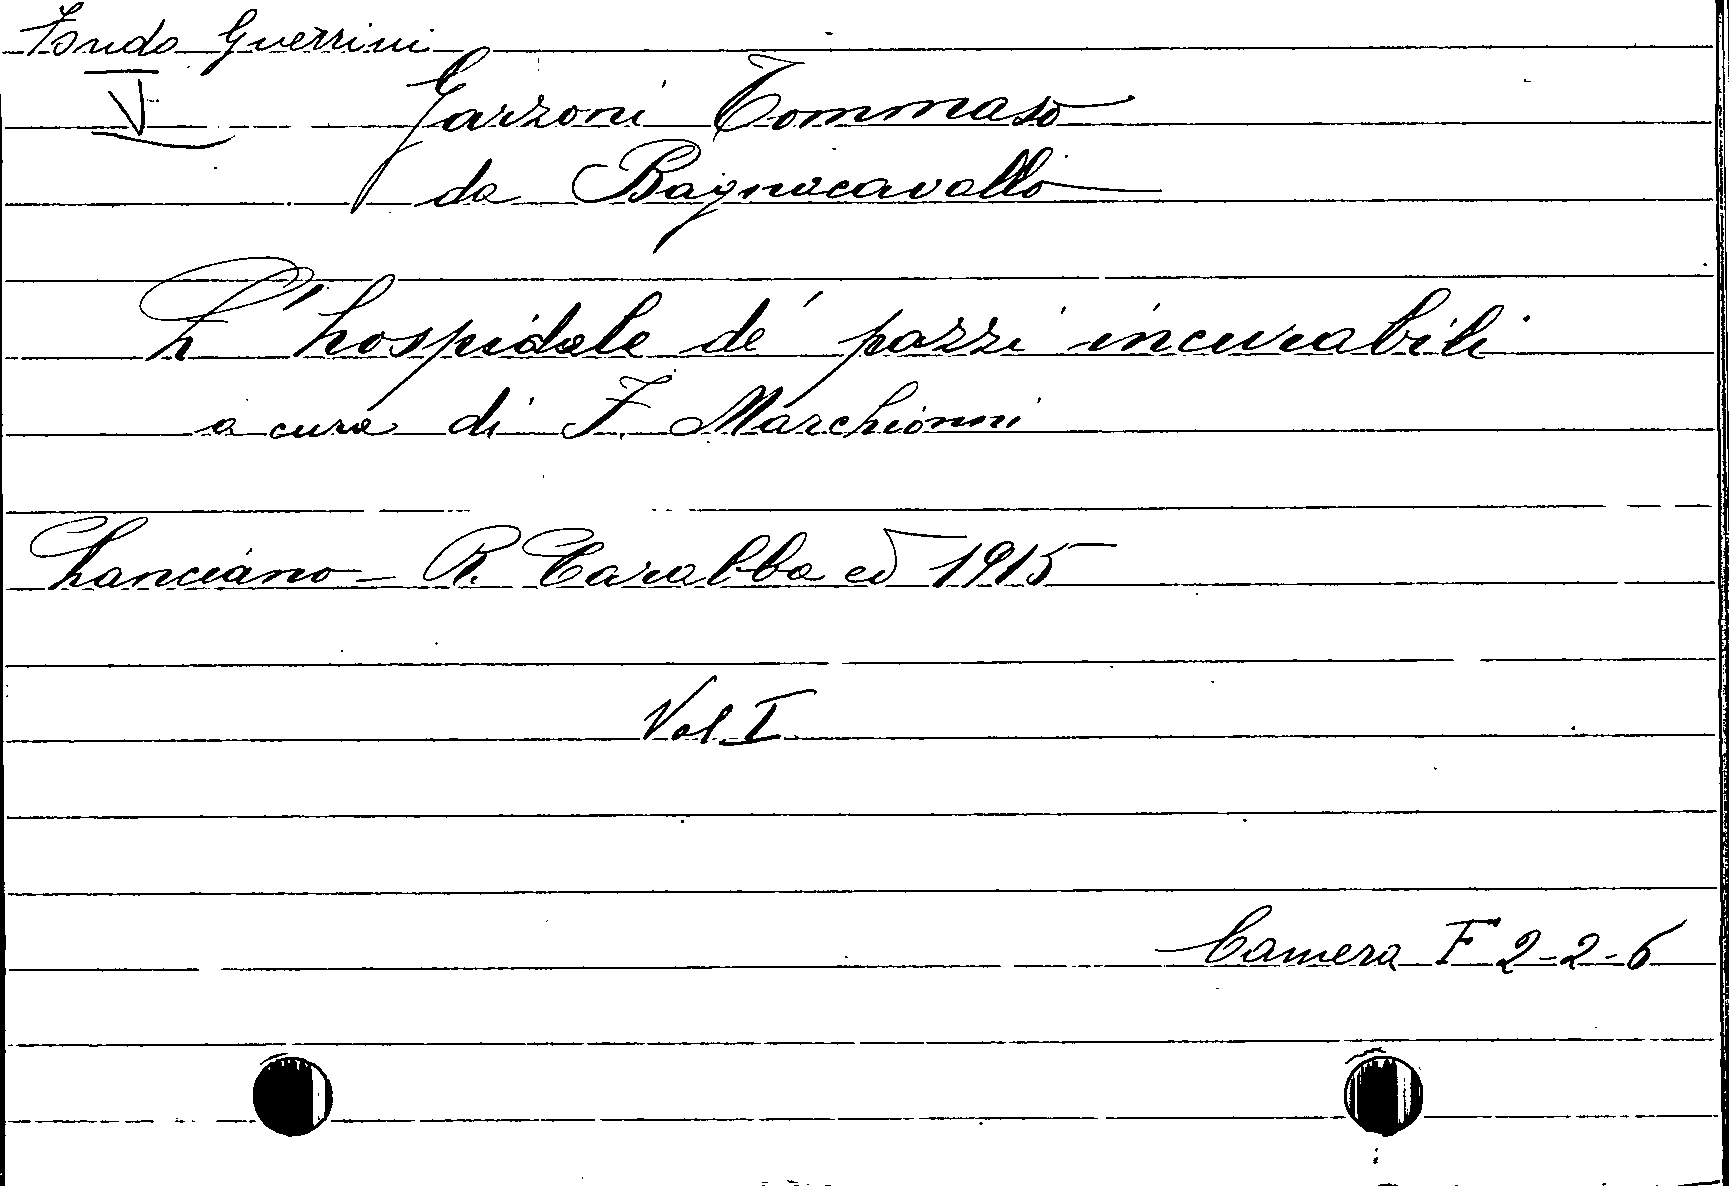 Fondo Guerrini
V
Garzoni Tommaso
da Bagnocavallo
L'hospidale de' pazzi incurabili
a cura di F. Marchionni
Lanciano - R. Carabba ed 1915
Vol I
Camera F 2-2-6